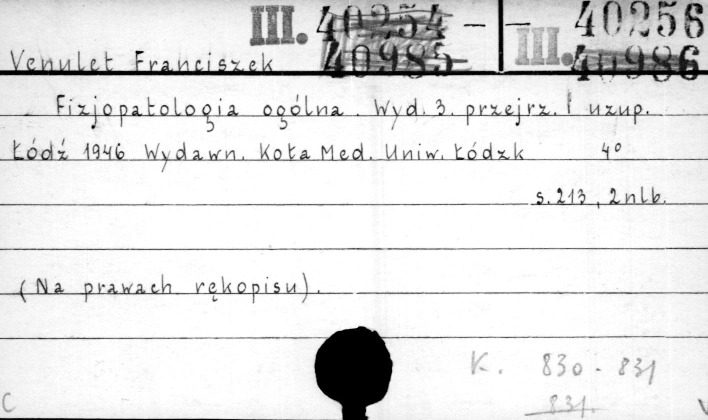 III. 40254 - - 40256
III. 40985 40986
Venulet Franciszek
Fizjopatologia ogólna. Wyd. 3. przejrz. i uzup.
Łódź 1946 Wydawn. Koła Med. Uniw. Łódzk 4°
s. 213, 2 nlb.
(Na prawach rękopisu).
K. 830 - 831
831.
C